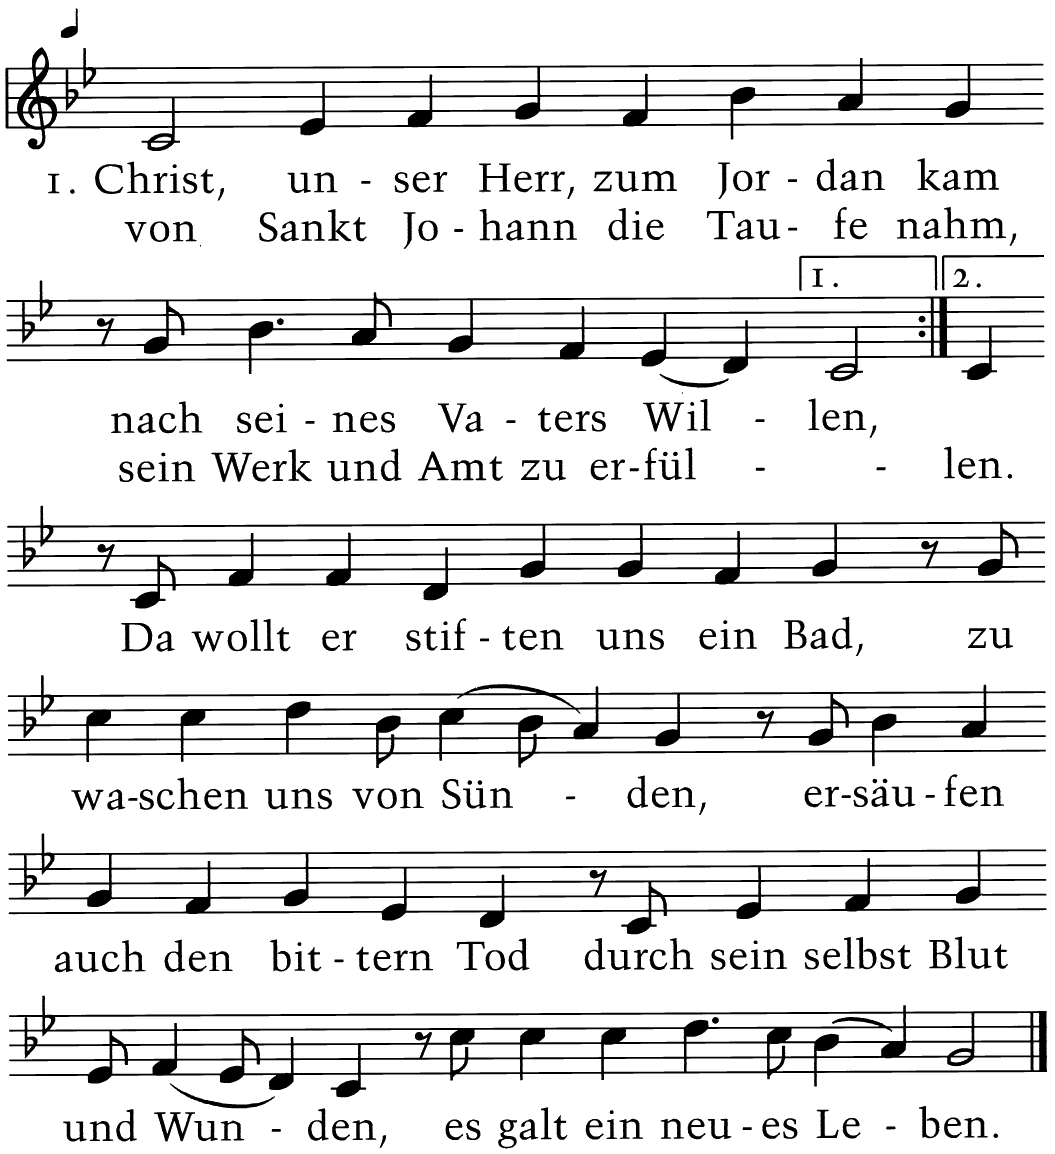 1. Christ, un - ser Herr, zum Jor - dan kam
von Sankt Jo - hann die Tau - fe nahm,
1. 2.
nach sei - nes Va - ters Wil - len,
sein Werk und Amt zu er-fül - - len.
Da wollt er stif - ten uns ein Bad, zu
wa-schen uns von Sün - den, er-säu - fen
auch den bit - tern Tod durch sein selbst Blut
und Wun - den, es galt ein neu - es Le - ben.